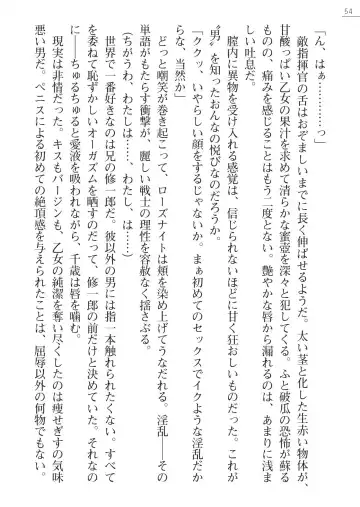 54
「ん、はぁ…………っ」
　敵指揮官の舌はおぞましいまでに長く伸ばせるようだ。太い茎と化した生赤い物体が、
甘酸っぱい乙女の果汁を求めて清らかな蜜壺を深々と犯してくる。ふと破瓜の恐怖が蘇る
ものの、痛みを感じることはもう二度とない。艶やかな唇から漏れるのは、あまりに浅ま
しい吐息だ。
　膣内に異物を受け入れる感覚は、信じられないほどに甘く狂おしいものだった。これが
〝男〟を知ったおんなの悦びなのだろうか。
「ククッ、いやらしい顔をするじゃないか。まぁ初めてのセックスでイクような淫乱だか
らな、当然か」
　どっと嘲笑が巻き起こって、ローズナイトは頬を染め上げてうなだれる。淫乱――その
単語がもたらす衝撃が、麗しい戦士の理性を容赦なく揺さぶる。
（ちがうわ、わたしは……わたし、は……）
　世界で一番好きなのは兄の修一郎だ。彼以外の男には指一本触れられたくない。すべて
を委ねて恥ずかしいオーガズムを晒すのだって、修一郎の前だけと決めていた。それなの
に――ちゅるちゅると愛液を吸われながら、千歳は唇を噛む。
　現実は非情だった。キスもバージンも、乙女の純潔を奪い尽くしたのは痩せぎすの気味
悪い男だ。ペニスによる初めての絶頂感を与えられたことは、屈辱以外の何物でもない。